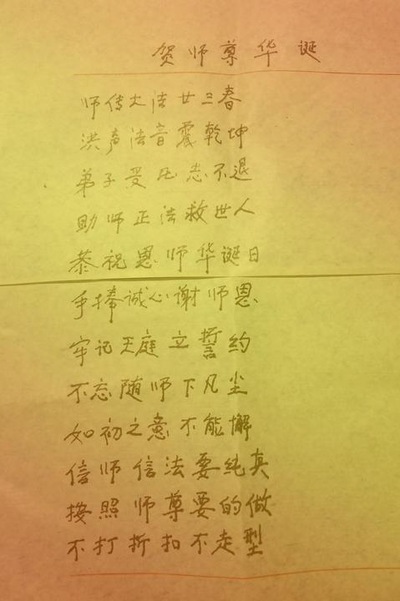 贺师尊华诞
师传大法廿三春
洪声法音震乾坤
弟子受压志不退
助师正法救世人
恭祝恩师华诞日
手捧诚心谢师恩
牢记天庭立誓约
不忘随师下凡尘
如初之意不能懈
信师信法要纯真
按照师尊要的做
不打折扣不走型